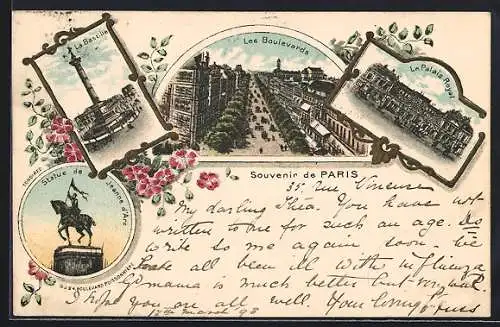 La Bastille
Les Boulevards
Le Palais Royal
Statue de
Jeanne d'Arc
Souvenir de PARIS
35, rue
My darling Théa. You have not
written to me for such an age. Do
write to me again soon. We
have all been ill with influenza
Gdmama is much better but
I hope you are all well. Your loving
12th march 98
BOULEVARD POISSONNIERE